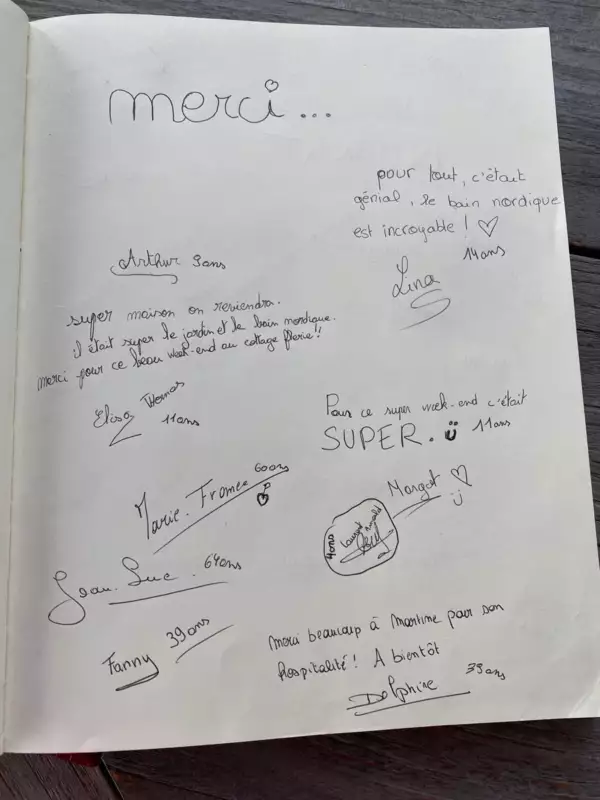 merci...
pour tout, c'était
génial, le bain nordique
est incroyable ! ♡
14 ans
Lina
Arthur 9ans
super maison on reviendra.
il était super le jardin et le bain nordique.
merci pour ce beau week-end au cottage fleurie !!
Elisa Thomas
11ans
Pour ce super week-end c'était
SUPER. 11ans
Margot ♡
Marie-France 60ans
4ans
Jean-Luc. 64ans
Fanny 39ans
Merci beaucoup à Martine pour son
hospitalité ! A bientôt
Delphine 39ans